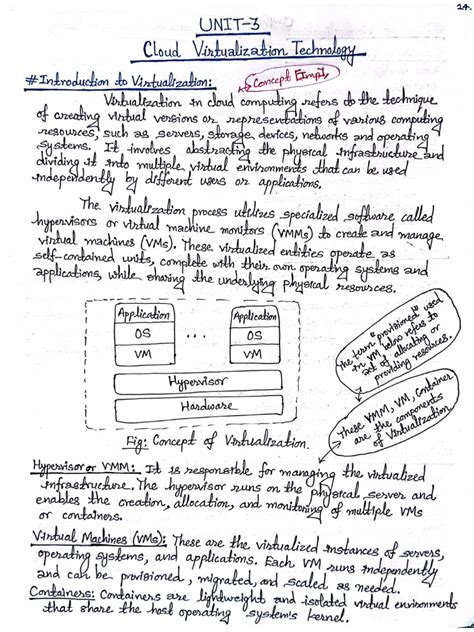 24.
UNIT-3
Cloud Virtualization Technology
#Introduction to Virtualization:
Concept [Imp]
Virtualization in cloud computing refers to the technique
of creating virtual versions or representations of various computing
resources, such as servers, storage devices, networks and operating
systems. It involves abstracting the physical infrastructure and
dividing it into multiple virtual environments that can be used
independently by different users or applications.
The virtualization process utilizes specialized software called
hypervisors or virtual machine monitors (VMMs) to create and manage
virtual machines (VMs). These virtualized entities operate as
self-contained units, complete with their own operating systems and
applications, while sharing the underlying physical resources.
Application Application
OS ... OS
VM VM
Hypervisor
Hardware
Fig: Concept of Virtualization.
The term "provisioned" used
in VM below refers to
act of allocating or
providing resources.
These VMM, VM, Container
are the components
of Virtualization
Hypervisor or VMM: It is responsible for managing the virtualized
infrastructure. The hypervisor runs on the physical server and
enables the creation, allocation, and monitoring of multiple VMs
or containers.
Virtual Machines (VMs): These are the virtualized instances of servers,
operating systems, and applications. Each VM runs independently
and can be provisioned, migrated, and scaled as needed.
Containers: Containers are lightweight and isolated virtual environments
that share the host operating system's kernel.